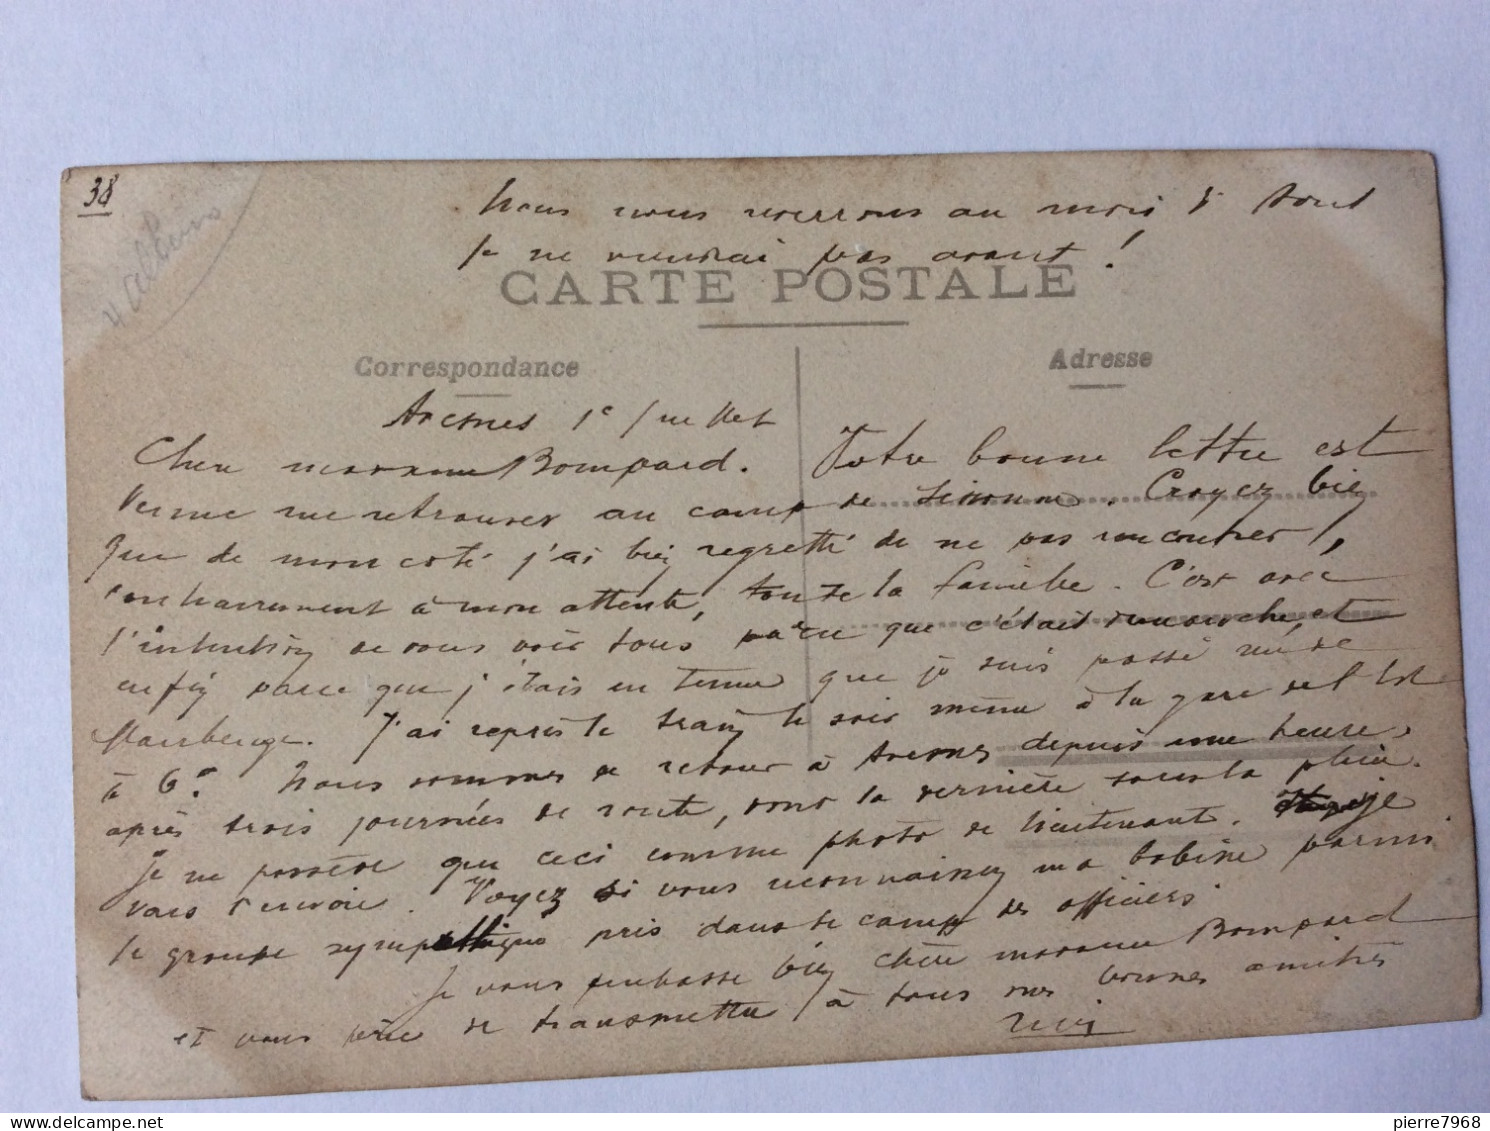 38
4 album
Nous nous verrons au mois d' Aout
Je ne viendrai pas avant !
CARTE POSTALE
Correspondance
Adresse
Avesnes 1e Juillet
Chère madame Bompard. Votre bonne lettre est
venue me retrouver au camp de Sissonne. Croyez bien
que de mon coté j'ai bien regretté de ne pas rencontrer,
contrairement à mon attente, toute la famille. C'est avec
l'intention de vous voir tous parce que c'était dimanche, et
enfin parce que j'étais en tenue que je suis passé
Maubeuge. J'ai repris le train le soir même à la gare de l'Est
à 6h. Nous sommes de retour à Avesnes depuis une heure,
après trois journées de route, dont la dernière sous la pluie.
Je ne possède que ceci comme photo de lieutenant. je
vous l'envoie. Voyez si vous reconnaissez ma bobine parmi
le groupe sympathique pris dans le camp des officiers
Je vous embrasse bien chère madame Bompard
et vous prie de transmettre à tous mes bonnes amitiés
pierre7968